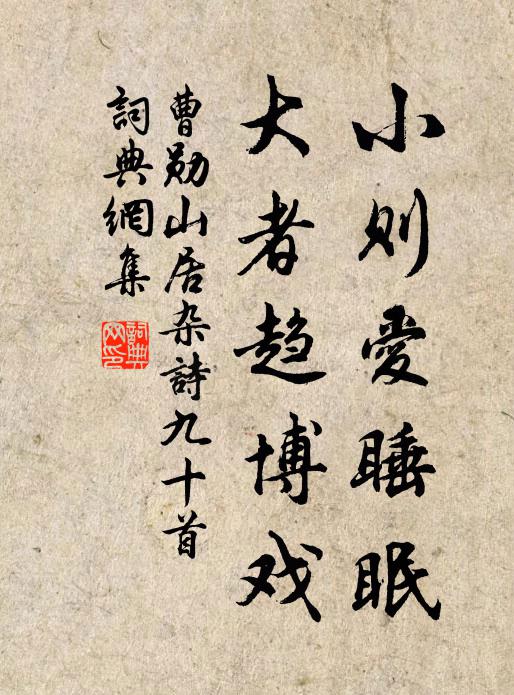 小则爱睡眠
大者趋博戏
曹勋山居杂詩九十首
詞典網集
詞典网印